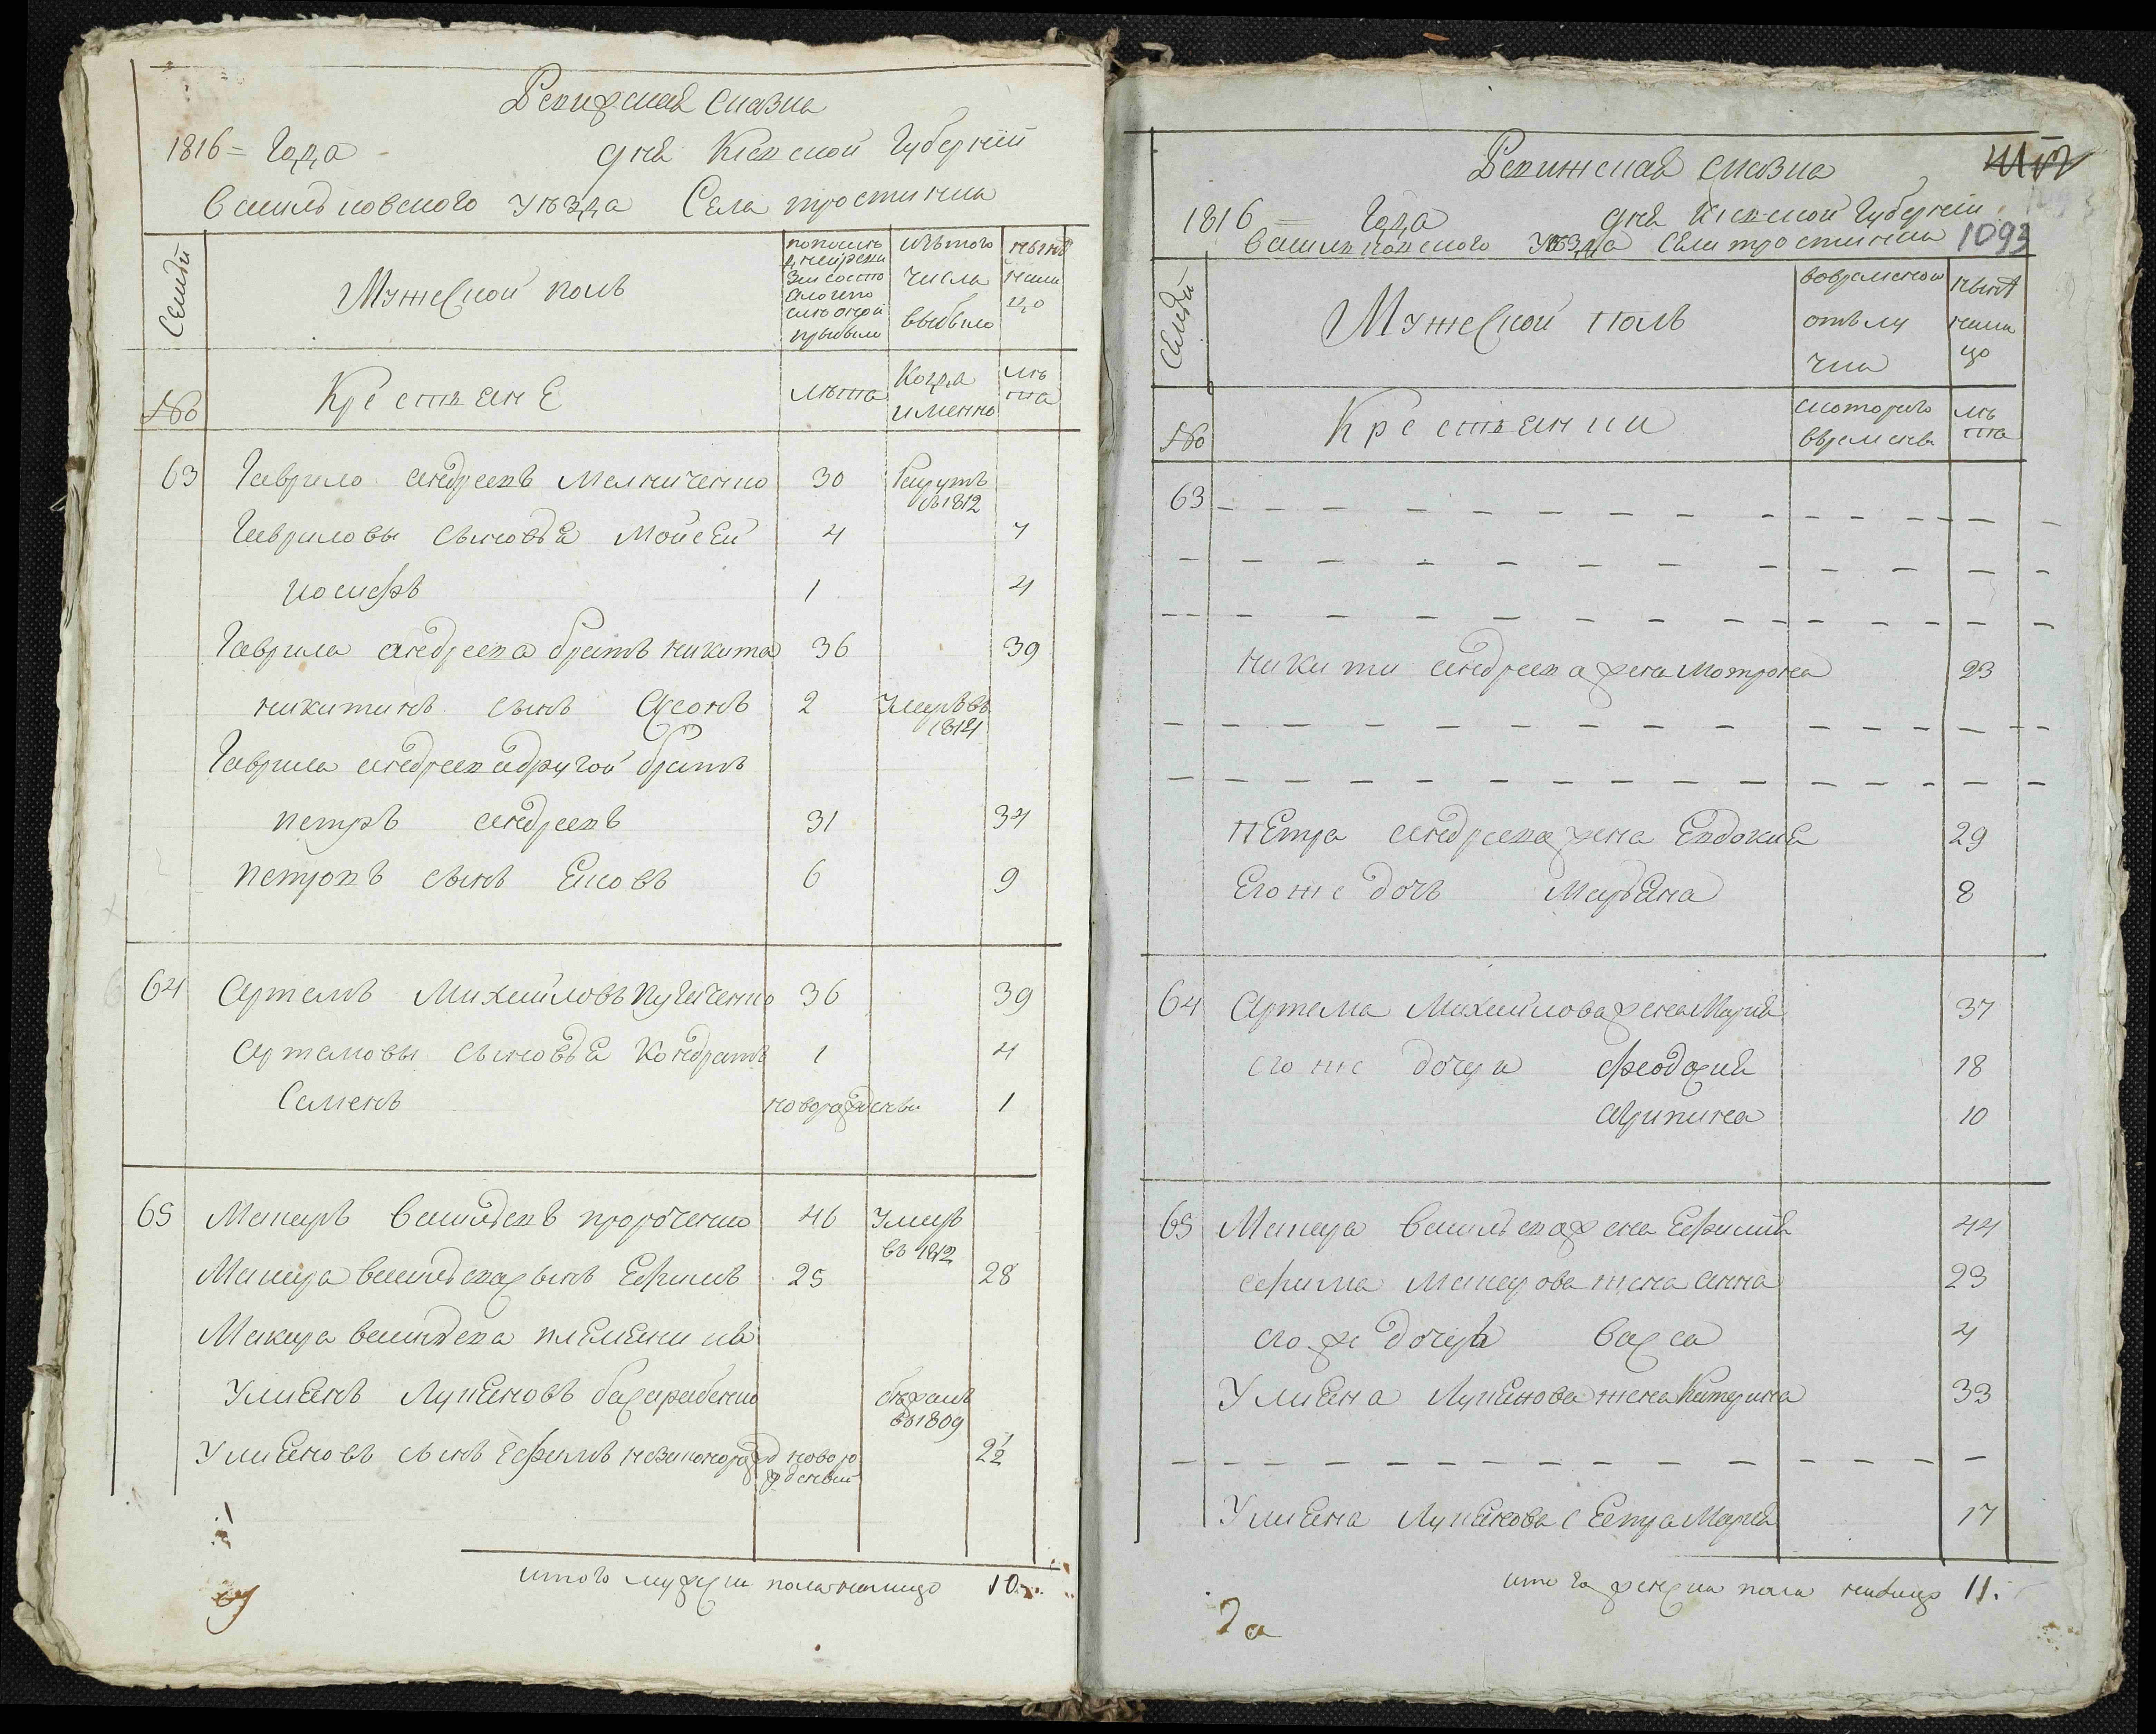 Ревизская сказка
1816 = Года дня Киевской Губернии
Васильковского уезда Села тростинки
Семьи
Мужеской полъ
по последней ревизии состояло и после оной прибыло
изъ того числа выбыло
ныне на лицо
№
Крестьяне
лета
Когда именно
лета
63 Гаврило андреевъ Мелниченко 30 Рекрутъ въ 1812
Гавриловы сыновья Мойсей 4 7
иосифъ 1 4
Гаврила андреева братъ никита 36 39
никитинъ сынъ Ксонъ 2 Умеръ въ 1814
Гаврила андреева другой братъ
петръ андреевъ 31 34
петровъ сынъ Яковъ 6 9
64 Артемъ Михайловъ пугаченко 36 39
Артемовы сыновья Кондратъ 1 4
Семенъ новорожденъ 1
65 Макаръ васильевъ пророченко 46 Умеръ въ 1812
Макара васильева сынъ Ефимъ 25 28
Макара васильева племенникъ
Улиянъ Лукяновъ басарабенко бежалъ въ 1809
Улияновъ сынъ Ефимъ новорожденный 2½
итого мужеска пола налицо 10.
Ревижская сказка
1093
1816 = Года дня Киевской Губернии
Васильковского уезда Села тростинки
Семьи
Мужеской полъ
во временной отлучки
ныне на лицо
№
Крестьянки
с которого времени
лета
63
никити андреева жена Мотрона 23
пЕтра андреева жена Евдокия 29
Его же дочь Марьяна 8
64 Артема Михайлова жена Мария 37
его же дочери феодосия 18
Агрипина 10
65 Макара васильева жена Ефимия 44
ефима Макарова жена анна 23
его же дочерь васса 4
Улияна Лукянова жена Катерина 33
Улияна Лукянова сестра Мария 17
итого женска пола налицо 11.
2а